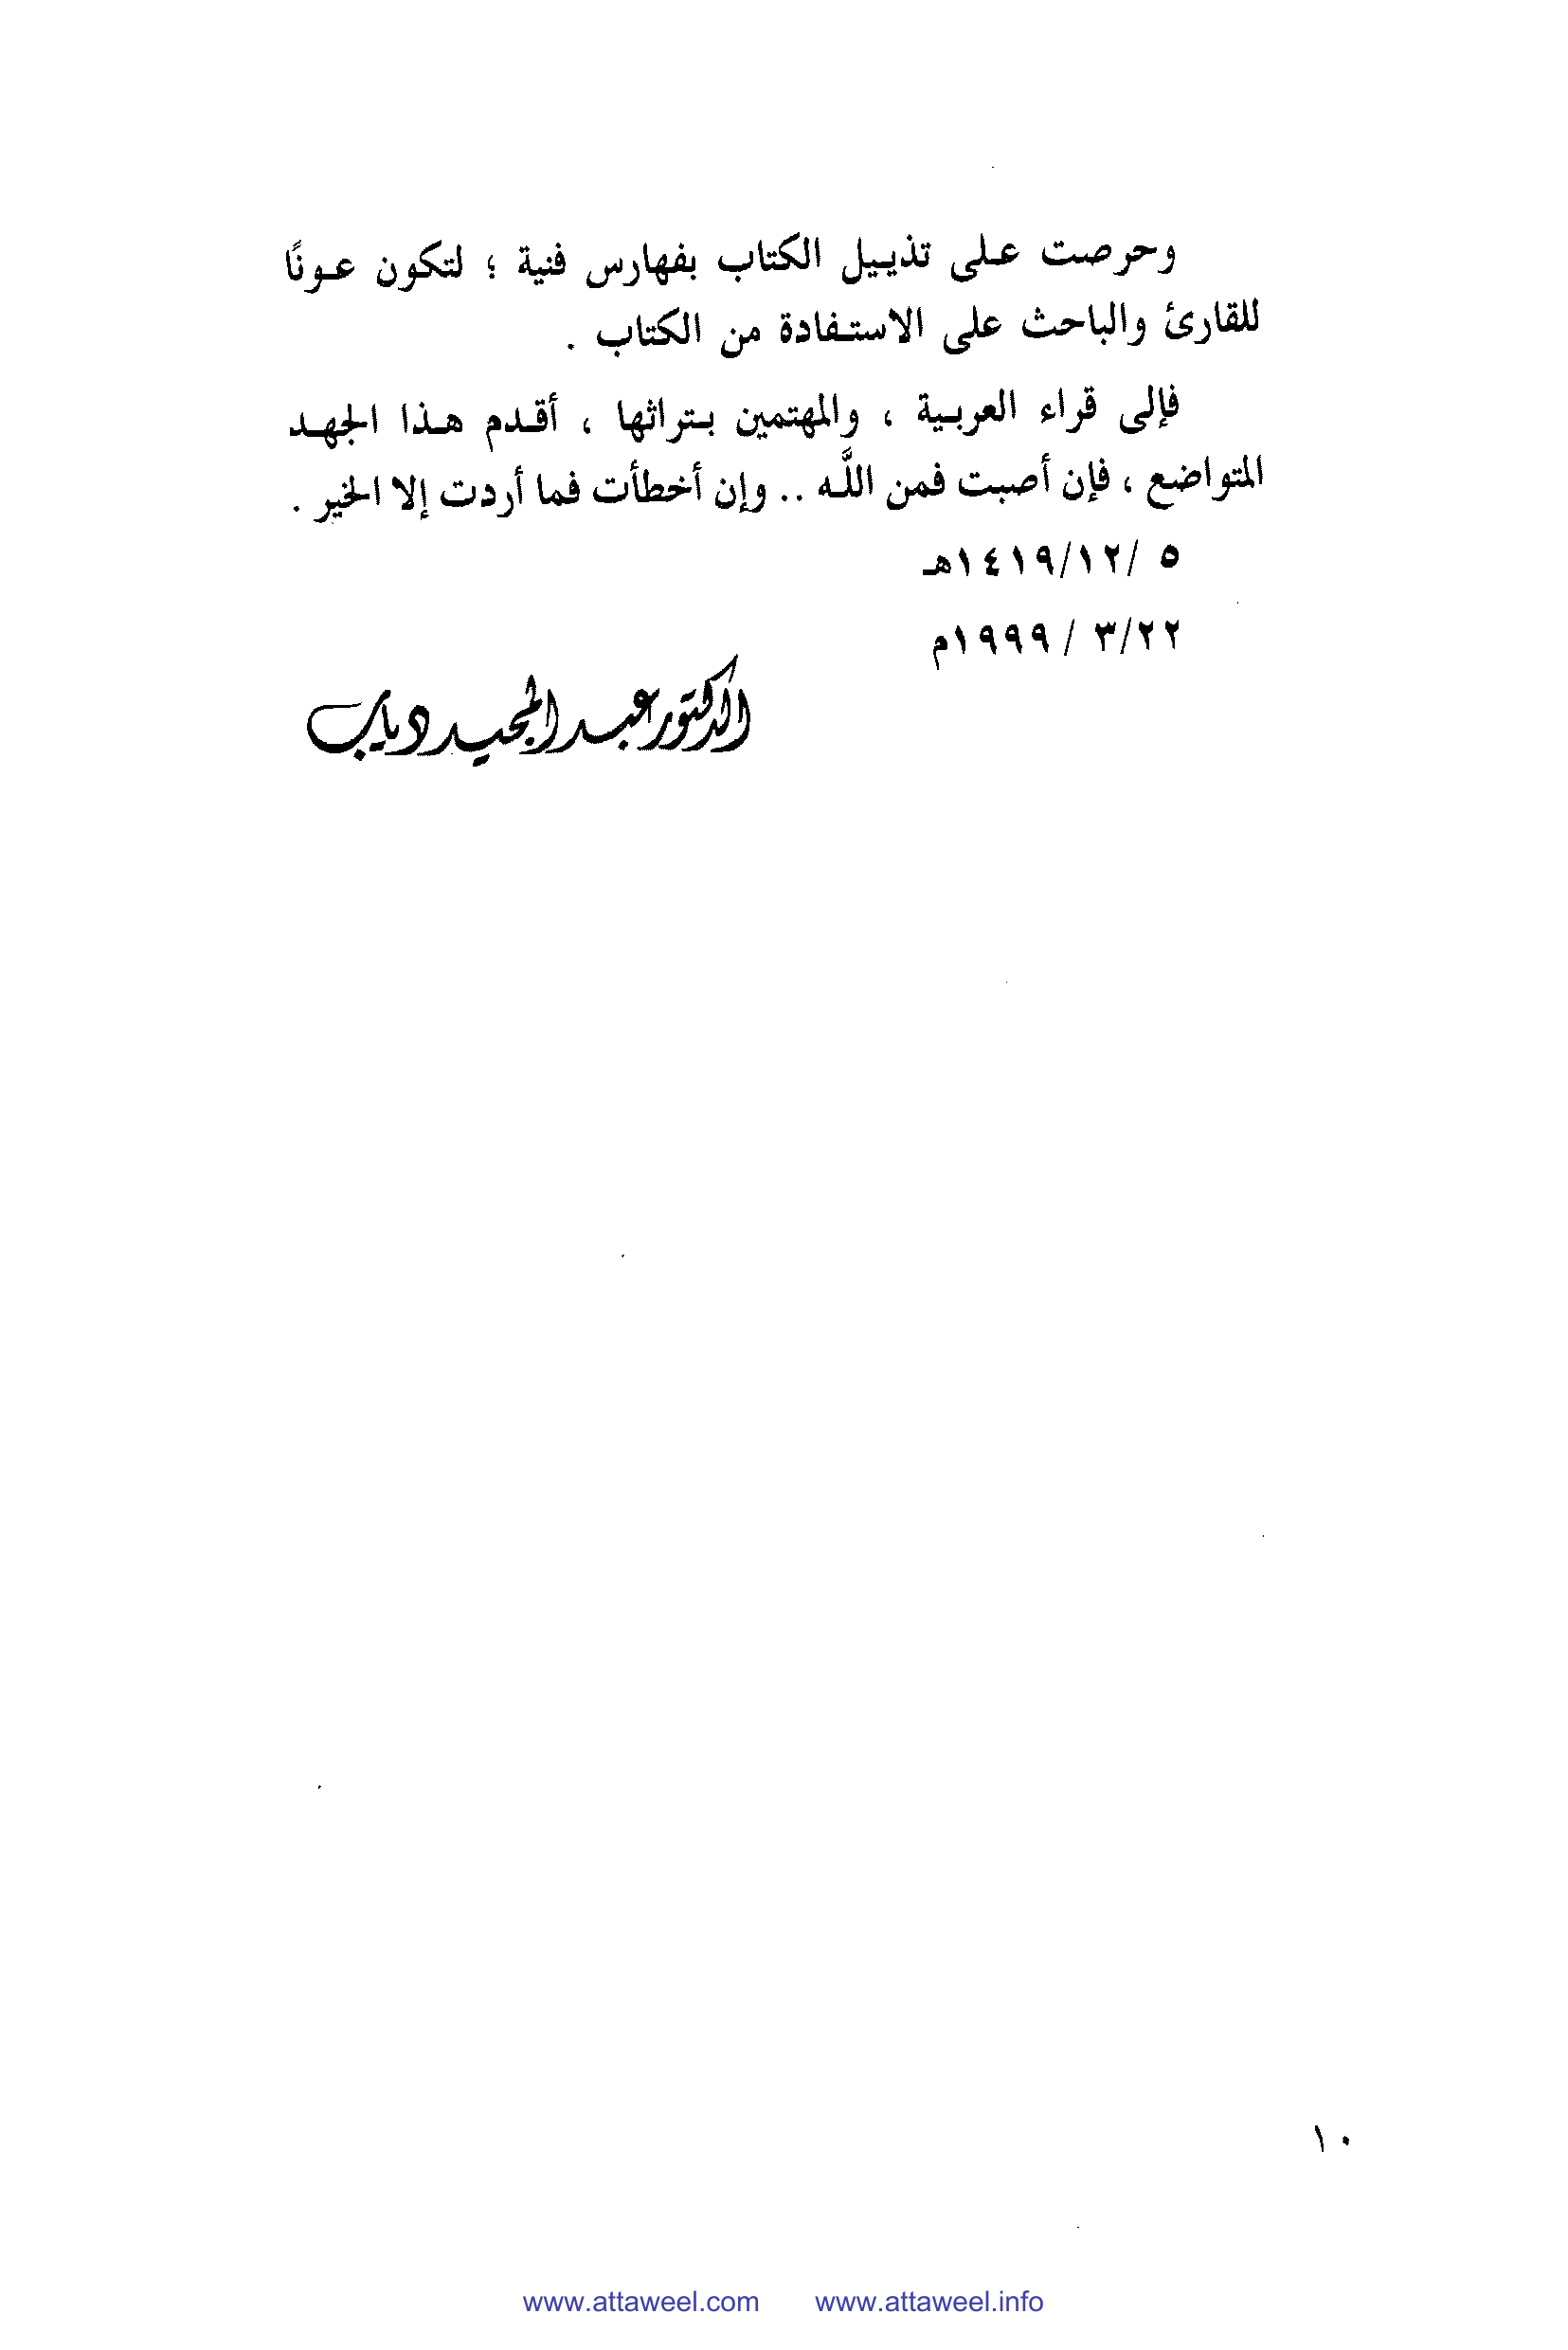 وحرصت على تذييل الكتاب بفهارس فنية ؛ لتكون عونًا
للقارئ والباحث على الاستفادة من الكتاب .
فإلى قراء العربية ، والمهتمين بتراثها ، أقدم هذا الجهد
المتواضع ، فإن أصبت فمن اللَّه .. وإن أخطأت فما أردت إلا الخير .
٥ /١٤١٩/١٢هـ
٣/٢٢ / ١٩٩٩م
الدكتور عبد المجيد دياب
١٠
www.attaweel.com www.attaweel.info